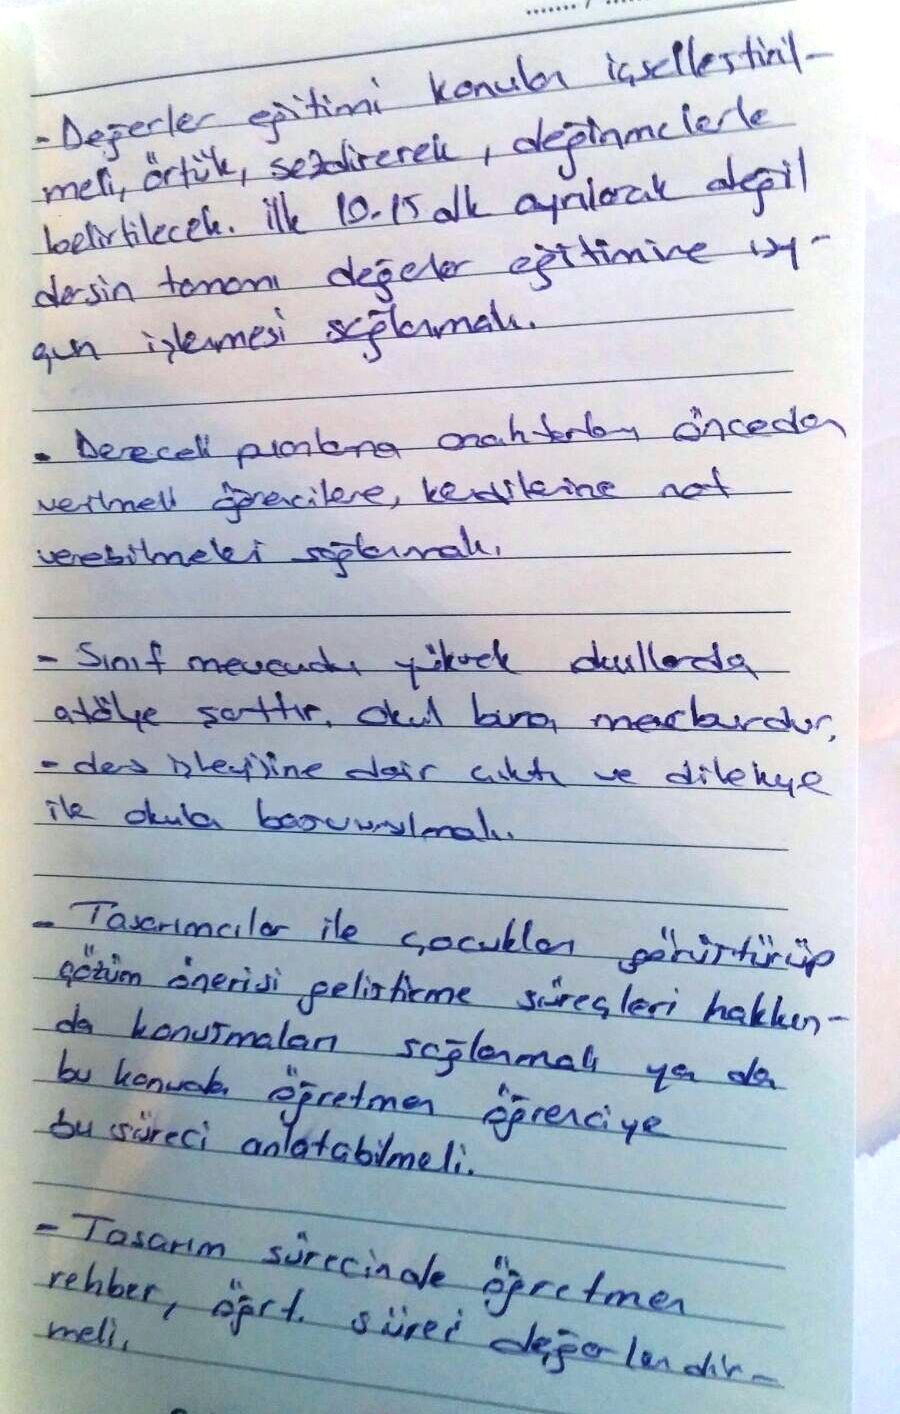 - Değerler eğitimi konuları içselleştiril-
meli, örtük, sezdirerek, değinmelerle
belirtilecek. ilk 10-15 dk ayrılarak değil
dersin tamamı değeler eğitimine uy-
gun işlenmesi sağlanmalı.
- Dereceli puanlama anahtarları önceden
verilmeli öğrencilere, kendilerine not
verebilmeleri sağlanmalı.
- Sınıf mevcudu yüksek okullarda
atölye şarttır, okul buna mecburdur.
- ders işleyişine dair çıktı ve dilekçe
ile okula başvurulmalı.
- Tasarımcılar ile çocukları görüştürüp
çözüm önerisi geliştirme süreçleri hakkın-
da konuşmaları sağlanmalı ya da
bu konuda öğretmen öğrenciye
bu süreci anlatabilmeli.
- Tasarım sürecinde öğretmen
rehber, öğrt. süreci değerlendir-
meli.